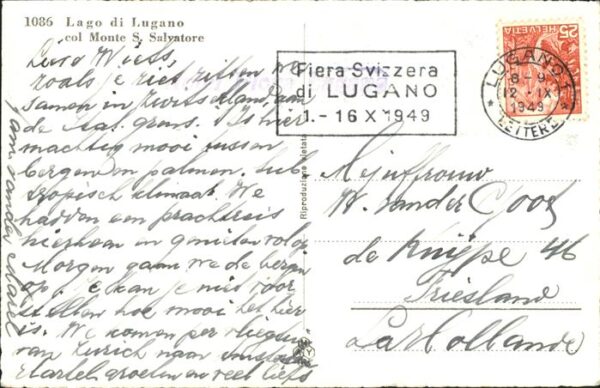 1086 Lago di Lugano
col Monte S. Salvatore
zoals je ziet zitten we
samen in Zwitserland, aan
de Ital. grens. 't Is hier
machtig mooi tussen
bergen en palmen. Sub
tropisch klimaat. We
hadden een prachtreis
hierheen en genieten volop
Morgen gaan we de bergen
op. Je kan je niet voor
stellen hoe mooi het hier
is. We komen per vliegtuig
van Zurich naar
Hartel. groeten en veel liefs
Fiera Svizzera
di LUGANO
1.-16 X 1949
LUGANO 1
8-9
12.IX
1949
LETTERE
25
HELVETIA
Riproduzione vietata
Mejuffrouw
W. van der
de Knijpe 46
Friesland
Hollande